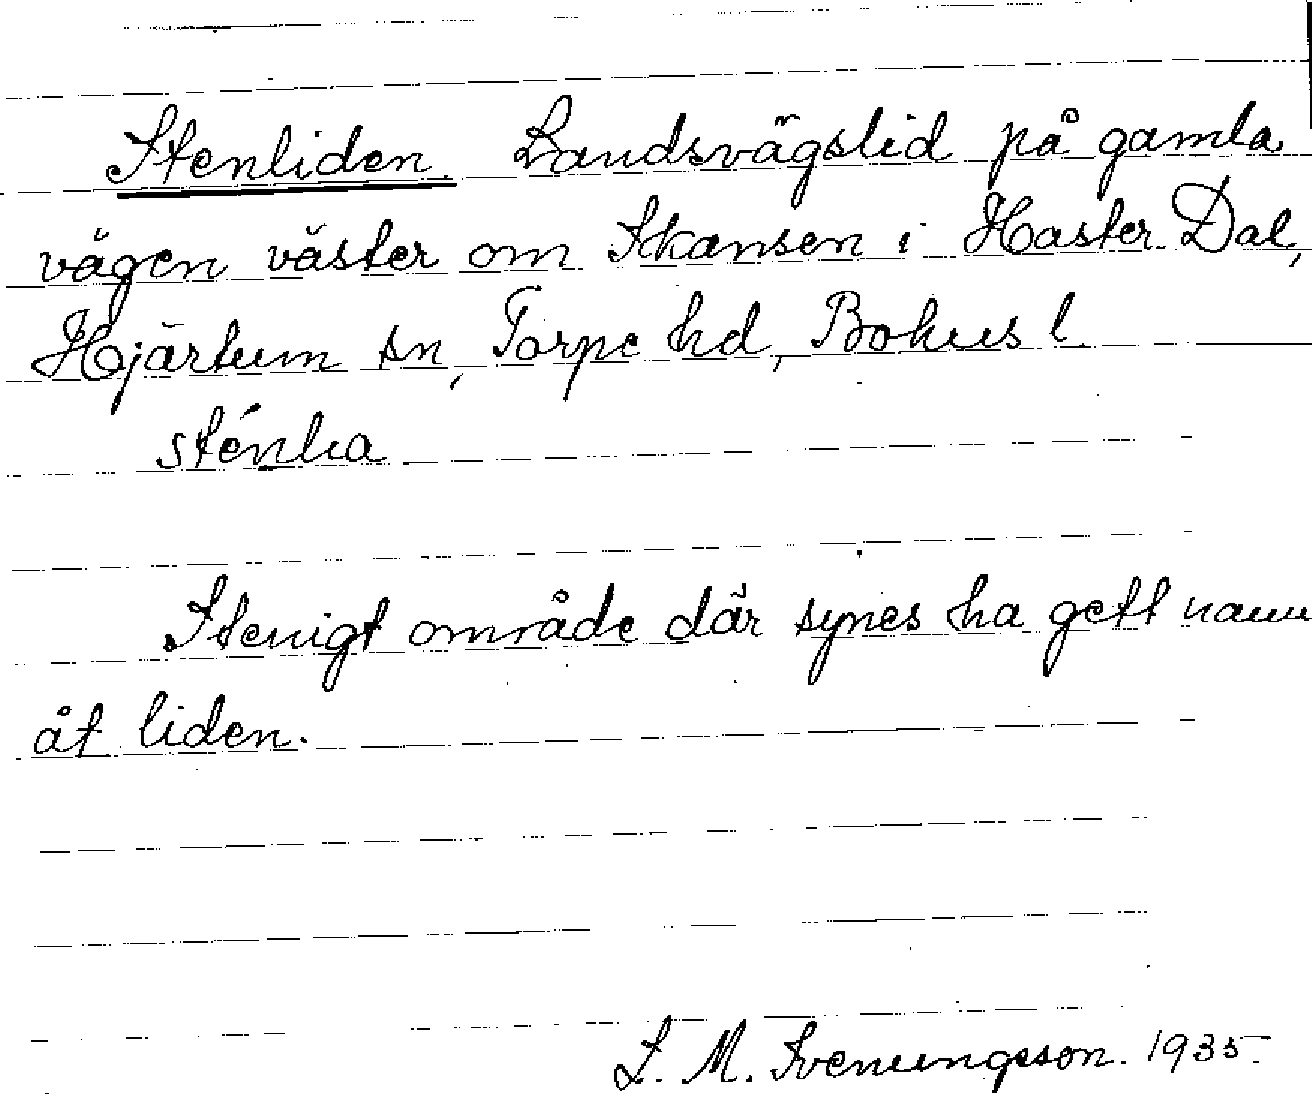 Stenliden. Landsvägslid på gamla
vägen väster om Skansen i Haster Dal,
Hjärtum sn, Torpe hd, Bohus l
sténlia
Stenigt område där synes ha gett namn
åt liden.
S. M. Svenungsson. 1935.